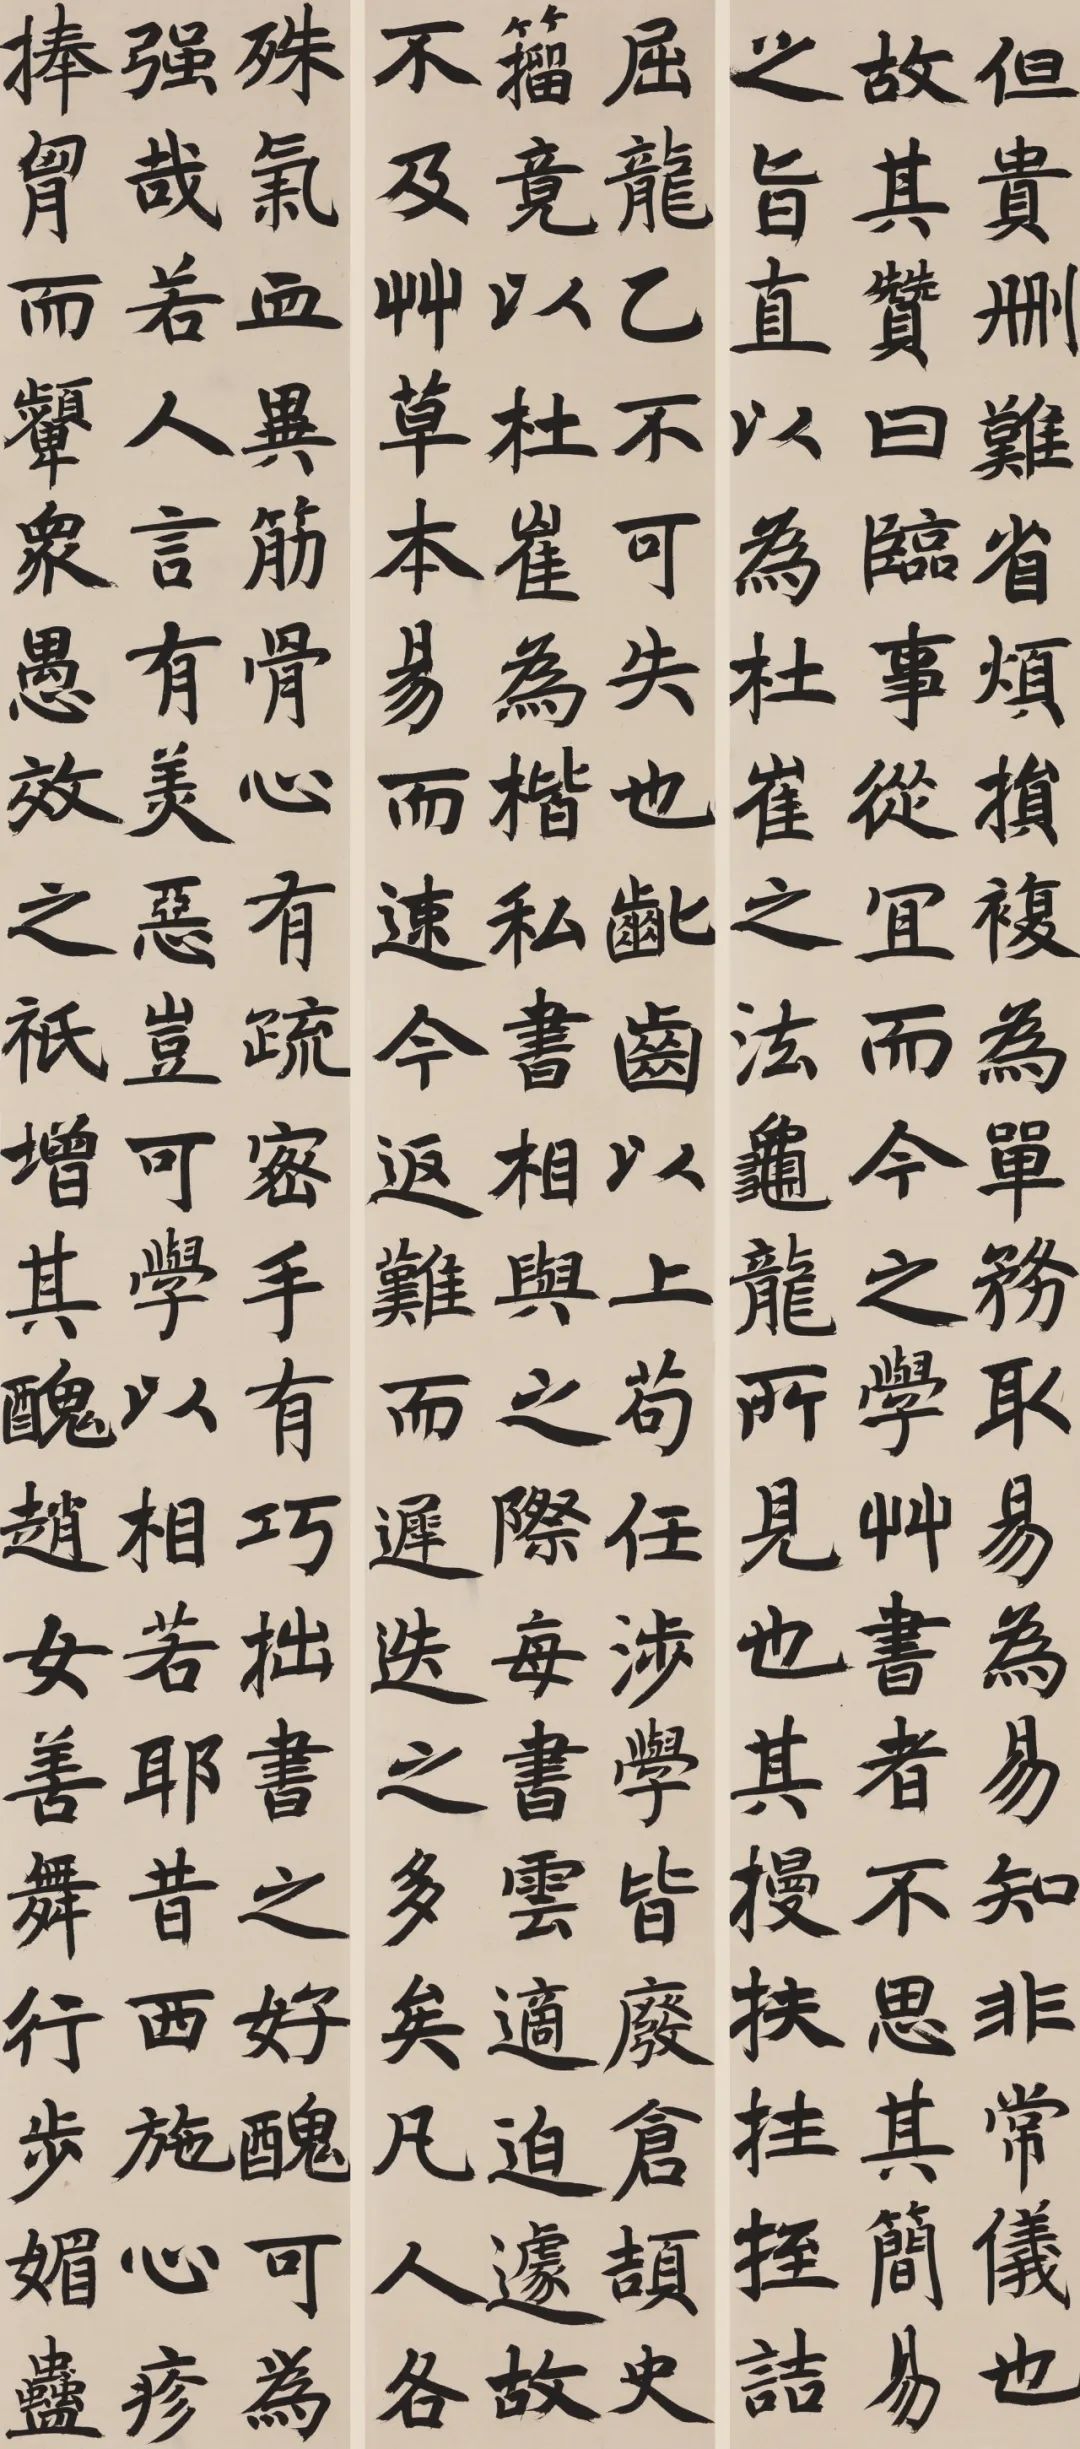 但貴刪難省煩損複為單務取易為易知非常儀也
故其贊曰臨事從宜而今之學艸書者不思其簡易
之旨直以為杜崔之法龜龍所見也其㩢扶拄挃詰
屈龍乙不可失也齔齒以上苟任涉學皆廢倉頡史
籀竟以杜崔為楷私書相與之際每書雲適迫遽故
不及艸草本易而速今返難而遲迭之多矣凡人各
殊氣血異筋骨心有疏密手有巧拙書之好醜可為
强哉若人言有美惡豈可學以相若耶昔西施心疹
捧胷而顰衆愚效之祇增其醜趙女善舞行步媚蠱